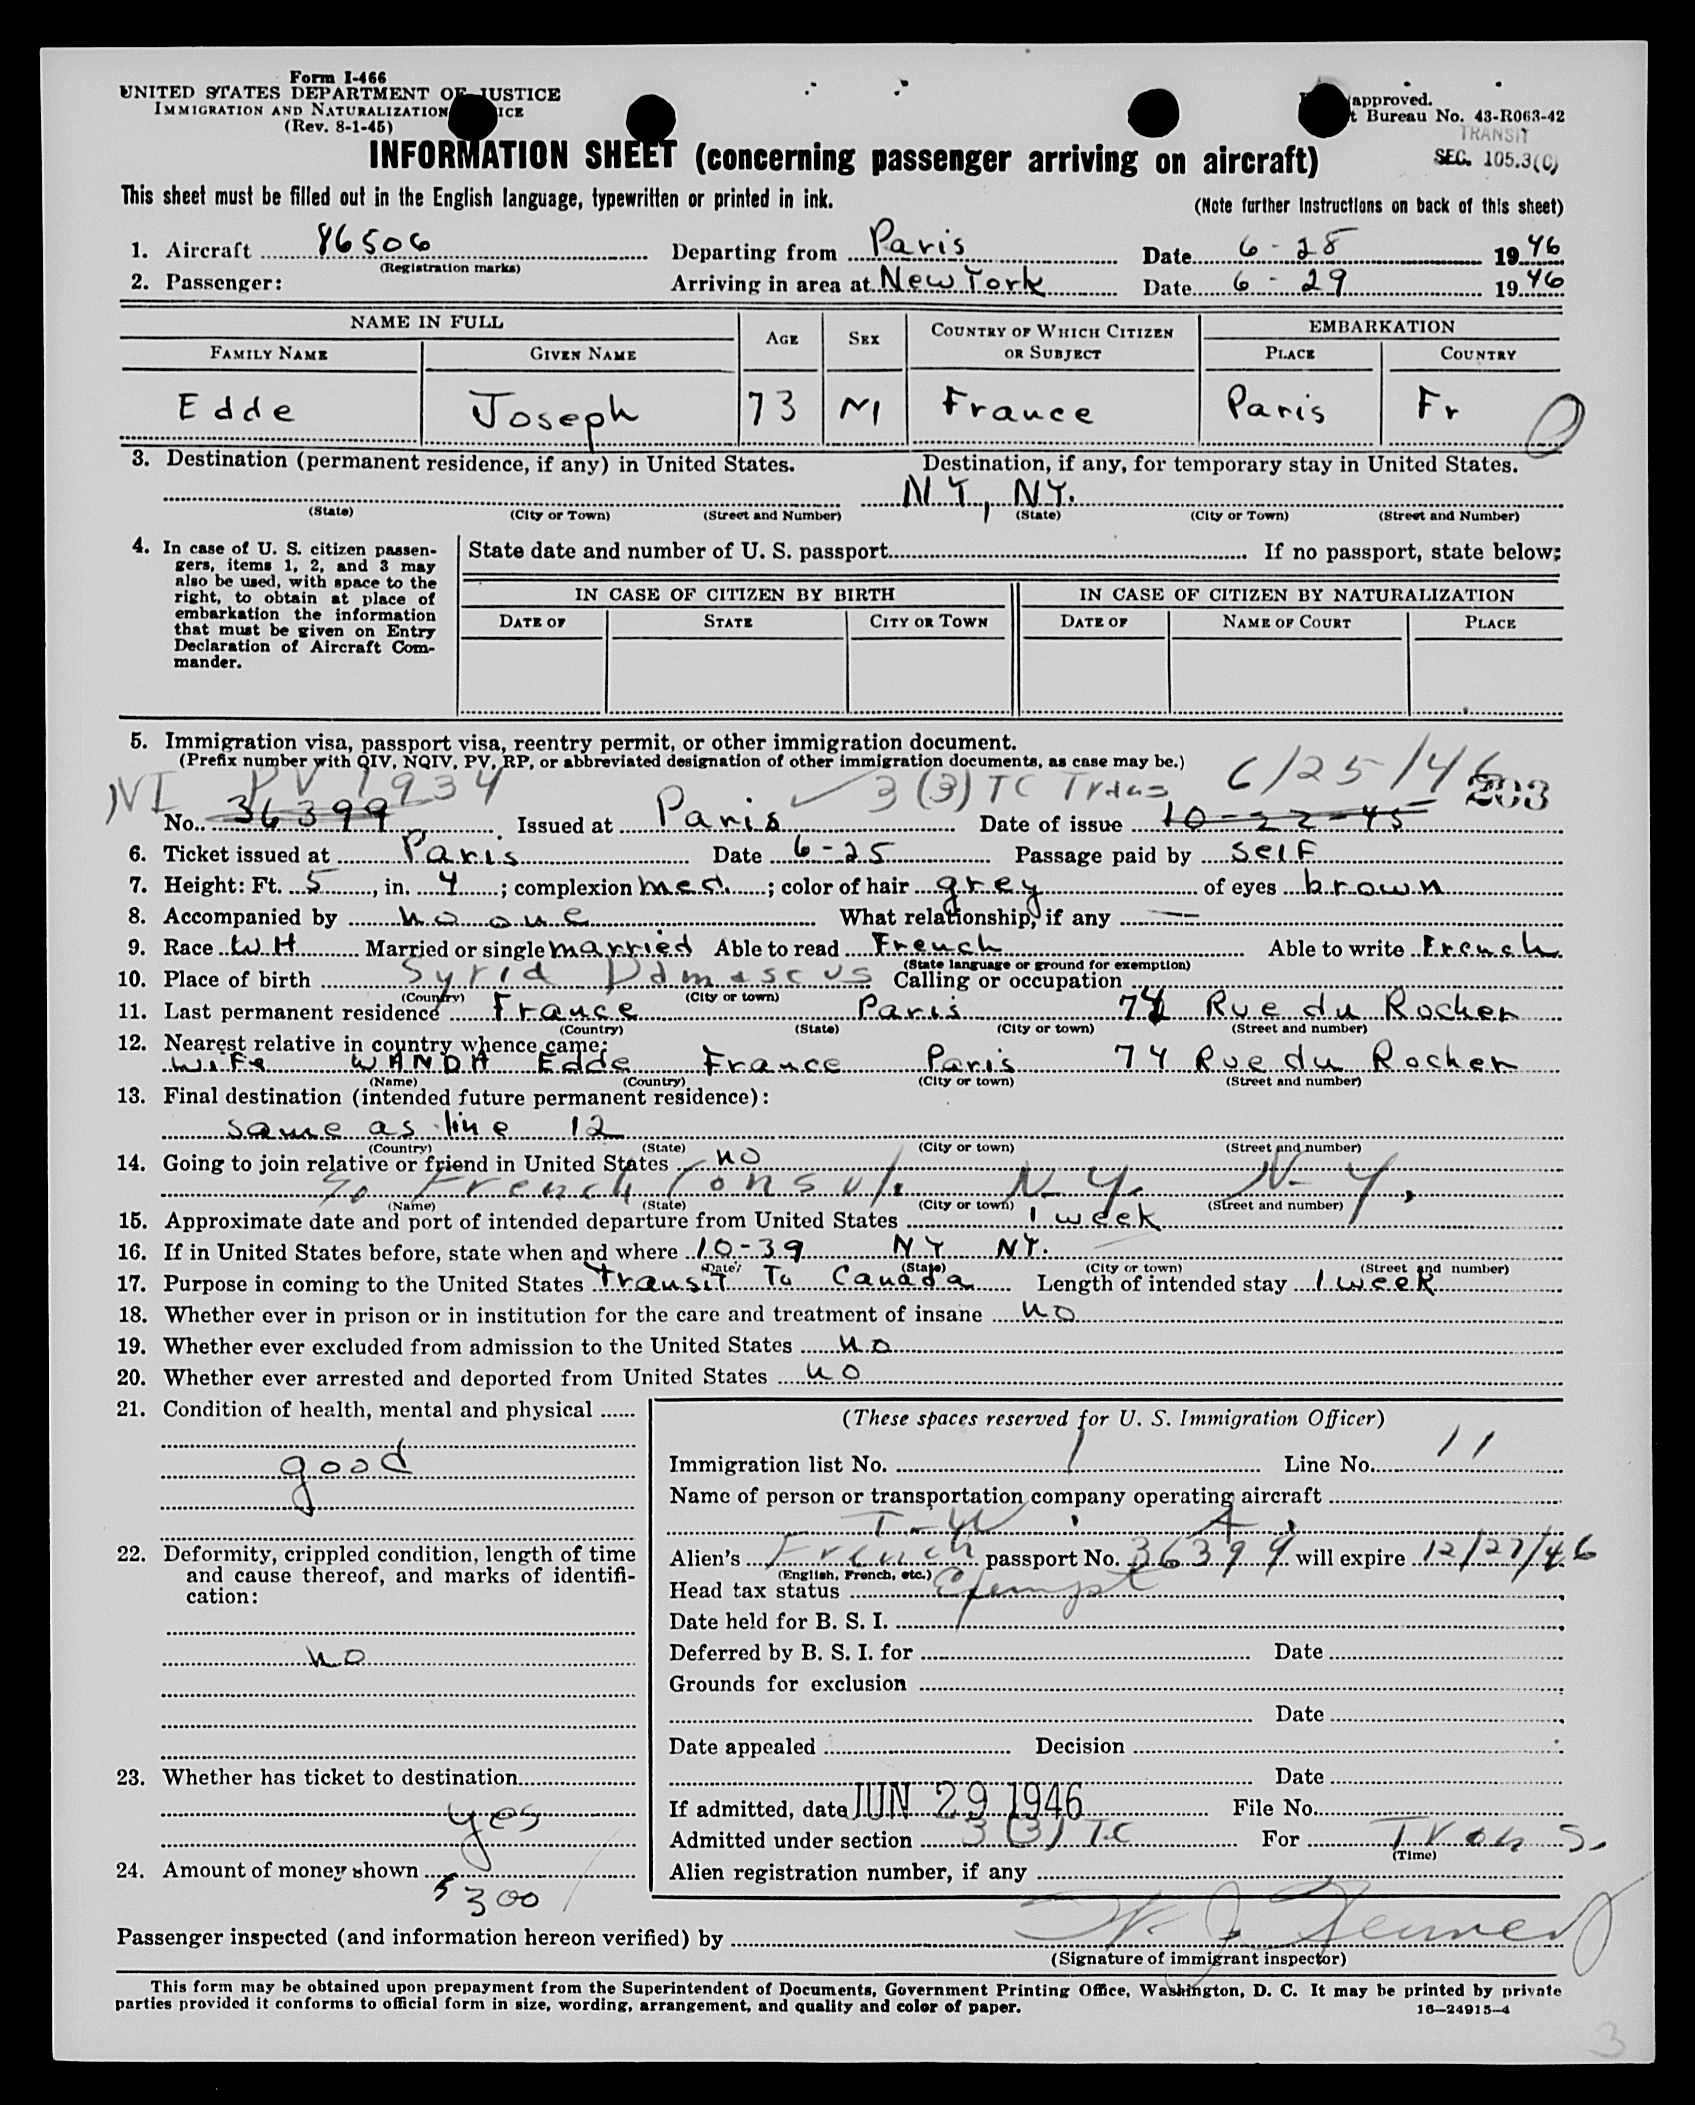 Form I-466
UNITED STATES DEPARTMENT OF JUSTICE
IMMIGRATION AND NATURALIZATION
(Rev. 8-1-45)
approved.
Bureau No. 43-R063-42
TRANSIT
SEC. 105.3(C)
INFORMATION SHEET (concerning passenger arriving on aircraft)
This sheet must be filled out in the English language, typewritten or printed in ink.
(Note further instructions on back of this sheet)
1. Aircraft 86506 Departing from Paris Date 6-28 1946
(Registration marks)
2. Passenger: Arriving in area at New York Date 6-29 1946
NAME IN FULL AGE SEX COUNTRY OF WHICH CITIZEN OR SUBJECT EMBARKATION
FAMILY NAME GIVEN NAME PLACE COUNTRY
Edde Joseph 73 M France Paris Fr
3. Destination (permanent residence, if any) in United States. Destination, if any, for temporary stay in United States.
N.Y., N.Y.
(State) (City or Town) (Street and Number) (State) (City or Town) (Street and Number)
4. In case of U. S. citizen passengers, items 1, 2, and 3 may also be used, with space to the right, to obtain at place of embarkation the information that must be given on Entry Declaration of Aircraft Commander.
State date and number of U. S. passport If no passport, state below:
IN CASE OF CITIZEN BY BIRTH IN CASE OF CITIZEN BY NATURALIZATION
DATE OF STATE CITY OR TOWN DATE OF NAME OF COURT PLACE
5. Immigration visa, passport visa, reentry permit, or other immigration document.
(Prefix number with QIV, NQIV, PV, RP, or abbreviated designation of other immigration documents, as case may be.)
NI PV 1934 3(3) TC Trans 6/25/46 203
No. 36399 Issued at Paris Date of issue 10-22-45
6. Ticket issued at Paris Date 6-25 Passage paid by self
7. Height: Ft. 5, in. 4; complexion med.; color of hair grey of eyes brown
8. Accompanied by no one What relationship, if any —
9. Race WH Married or single married Able to read French Able to write French
(State language or ground for exemption)
10. Place of birth Syria Damascus Calling or occupation
(Country) (City or town)
11. Last permanent residence France Paris 74 Rue du Rocher
(Country) (State) (City or town) (Street and number)
12. Nearest relative in country whence came:
Wife WANDA Edde France Paris 74 Rue du Rocher
(Name) (Country) (City or town) (Street and number)
13. Final destination (intended future permanent residence):
same as line 12
(Country) (State) (City or town) (Street and number)
14. Going to join relative or friend in United States no
To French Consul. N.Y. N-Y,
(Name) (State) (City or town) (Street and number)
15. Approximate date and port of intended departure from United States 1 week
16. If in United States before, state when and where 10-39 NY NY.
(Date) (State) (City or town) (Street and number)
17. Purpose in coming to the United States Transit To Canada Length of intended stay 1 week
18. Whether ever in prison or in institution for the care and treatment of insane no
19. Whether ever excluded from admission to the United States no
20. Whether ever arrested and deported from United States no
21. Condition of health, mental and physical
good
22. Deformity, crippled condition, length of time and cause thereof, and marks of identification:
no
23. Whether has ticket to destination
yes
24. Amount of money shown
$300
(These spaces reserved for U. S. Immigration Officer)
Immigration list No. 1 Line No. 11
Name of person or transportation company operating aircraft
T-W.A.
Alien's French passport No. 36399 will expire 12/27/46
(English, French, etc.)
Head tax status Exempt
Date held for B. S. I.
Deferred by B. S. I. for Date
Grounds for exclusion
Date
Date appealed Decision
Date
If admitted, date JUN 29 1946 File No.
Admitted under section 3(3) T.C For Trans.
(Time)
Alien registration number, if any
Passenger inspected (and information hereon verified) by
(Signature of immigrant inspector)
This form may be obtained upon prepayment from the Superintendent of Documents, Government Printing Office, Washington, D. C. It may be printed by private
parties provided it conforms to official form in size, wording, arrangement, and quality and color of paper.
16—24915-4
3